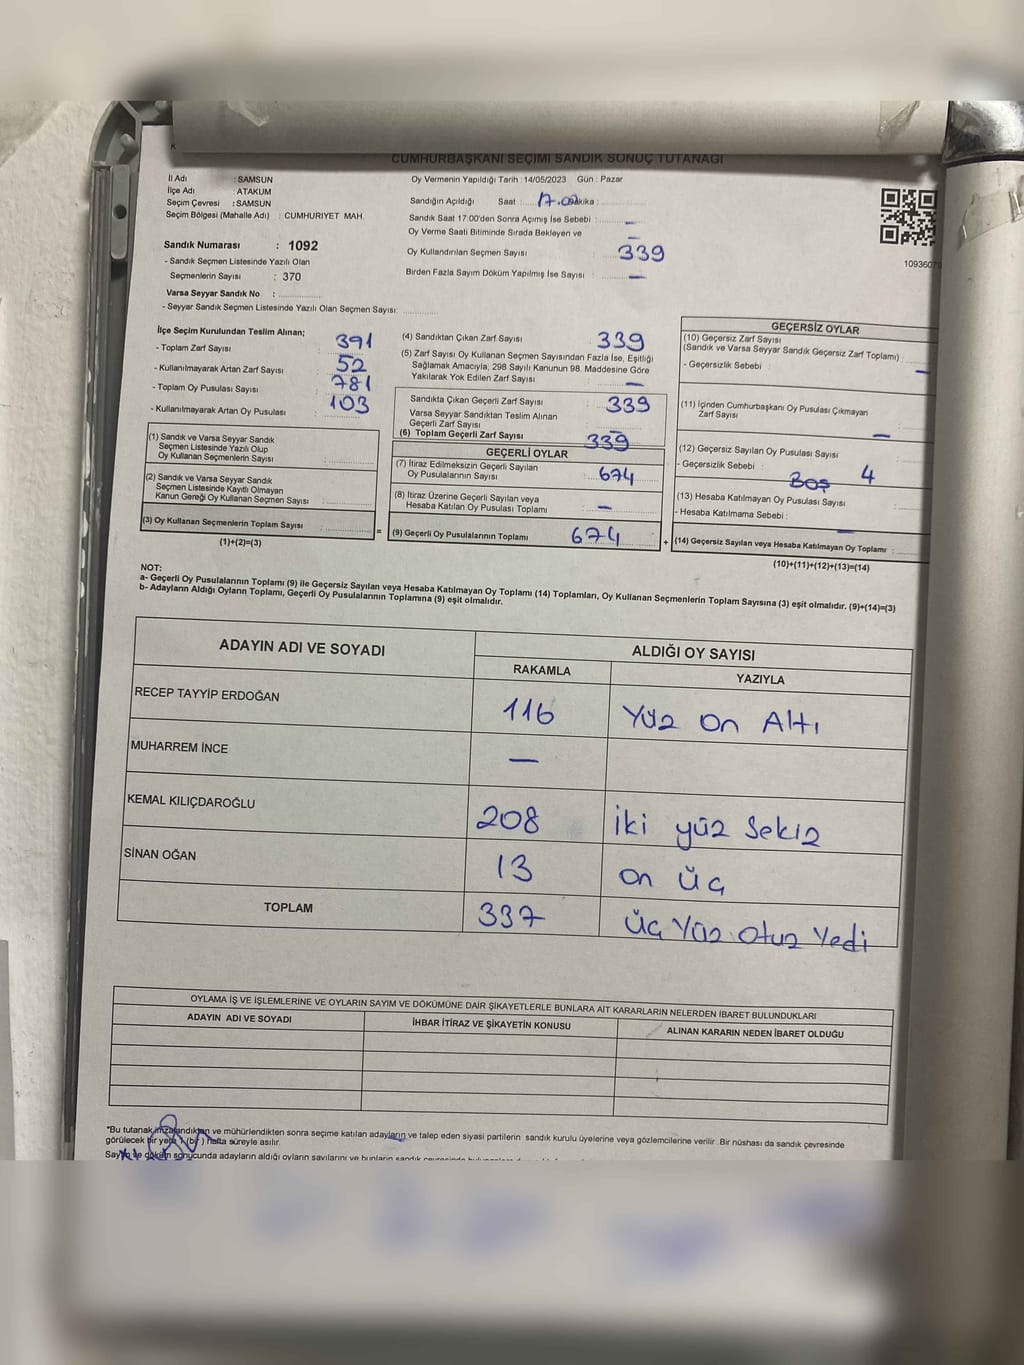 CUMHURBAŞKANI SEÇİMİ SANDIK SONUÇ TUTANAĞI
İl Adı : SAMSUN
İlçe Adı : ATAKUM
Seçim Çevresi : SAMSUN
Seçim Bölgesi (Mahalle Adı) : CUMHURIYET MAH.
Sandık Numarası : 1092
- Sandık Seçmen Listesinde Yazılı Olan
Seçmenlerin Sayısı : 370
Varsa Seyyar Sandık No :
- Seyyar Sandık Seçmen Listesinde Yazılı Olan Seçmen Sayısı:
Oy Vermenin Yapıldığı Tarih : 14/05/2023 Gün : Pazar
Sandığın Açıldığı Saat : 17.00 Dakika :
Sandık Saat 17:00'den Sonra Açımış İse Sebebi : —
Oy Verme Saati Bitiminde Sırada Bekleyen ve —
Oy Kullandırılan Seçmen Sayısı : 339
Birden Fazla Sayım Döküm Yapılmış İse Sayısı : —
10936079
İlçe Seçim Kurulundan Teslim Alınan;
- Toplam Zarf Sayısı : 391
- Kullanılmayarak Artan Zarf Sayısı : 52
- Toplam Oy Pusulası Sayısı : 781
- Kullanılmayarak Artan Oy Pusulası : 103
(1) Sandık ve Varsa Seyyar Sandık
Seçmen Listesinde Yazılı Olup
Oy Kullanan Seçmenlerin Sayısı :
(2) Sandık ve Varsa Seyyar Sandık
Seçmen Listesinde Kayıtlı Olmayan
Kanun Gereği Oy Kullanan Seçmen Sayısı :
(3) Oy Kullanan Seçmenlerin Toplam Sayısı : =
(1)+(2)=(3)
(4) Sandıktan Çıkan Zarf Sayısı : 339
(5) Zarf Sayısı Oy Kullanan Seçmen Sayısından Fazla İse, Eşitliği
Sağlamak Amacıyla, 298 Sayılı Kanunun 98. Maddesine Göre
Yakılarak Yok Edilen Zarf Sayısı : —
Sandıkta Çıkan Geçerli Zarf Sayısı : 339
Varsa Seyyar Sandıktan Teslim Alınan
Geçerli Zarf Sayısı : —
(6) Toplam Geçerli Zarf Sayısı : 339
GEÇERLİ OYLAR
(7) İtiraz Edilmeksizin Geçerli Sayılan
Oy Pusulalarının Sayısı : 674
(8) İtiraz Üzerine Geçerli Sayılan veya
Hesaba Katılan Oy Pusulası Toplamı : —
(9) Geçerli Oy Pusulalarının Toplamı : 674 +
GEÇERSİZ OYLAR
(10) Geçersiz Zarf Sayısı
(Sandık ve Varsa Seyyar Sandık Geçersiz Zarf Toplamı) :
- Geçersizlik Sebebi : —
(11) İçinden Cumhurbaşkanı Oy Pusulası Çıkmayan
Zarf Sayısı : —
(12) Geçersiz Sayılan Oy Pusulası Sayısı :
- Geçersizlik Sebebi : Boş 4
(13) Hesaba Katılmayan Oy Pusulası Sayısı
- Hesaba Katılmama Sebebi : —
(14) Geçersiz Sayılan veya Hesaba Katılmayan Oy Toplamı :
(10)+(11)+(12)+(13)=(14)
NOT:
a- Geçerli Oy Pusulalarının Toplamı (9) ile Geçersiz Sayılan veya Hesaba Katılmayan Oy Toplamı (14) Toplamları, Oy Kullanan Seçmenlerin Toplam Sayısına (3) eşit olmalıdır. (9)+(14)=(3)
b- Adayların Aldığı Oyların Toplamı, Geçerli Oy Pusulalarının Toplamına (9) eşit olmalıdır.
ADAYIN ADI VE SOYADI ALDIĞI OY SAYISI
RAKAMLA YAZIYLA
RECEP TAYYİP ERDOĞAN 116 Yüz On Altı
MUHARREM İNCE —
KEMAL KILIÇDAROĞLU 208 İki yüz Sekiz
SİNAN OĞAN 13 On Üç
TOPLAM 337 Üç Yüz Otuz Yedi
OYLAMA İŞ VE İŞLEMLERİNE VE OYLARIN SAYIM VE DÖKÜMÜNE DAİR ŞİKAYETLERLE BUNLARA AİT KARARLARIN NELERDEN İBARET BULUNDUKLARI
ADAYIN ADI VE SOYADI İHBAR İTİRAZ VE ŞİKAYETİN KONUSU ALINAN KARARIN NEDEN İBARET OLDUĞU
*Bu tutanak imzalandıktan ve mühürlendikten sonra seçime katılan adayların ve talep eden siyasi partilerin sandık kurulu üyelerine veya gözlemcilerine verilir. Bir nüshası da sandık çevresinde
görülecek bir yere 1 (bir) hafta süreyle asılır.
Sayım ve döküm sonucunda adayların aldığı oyların sayılarını ve bunların sandık